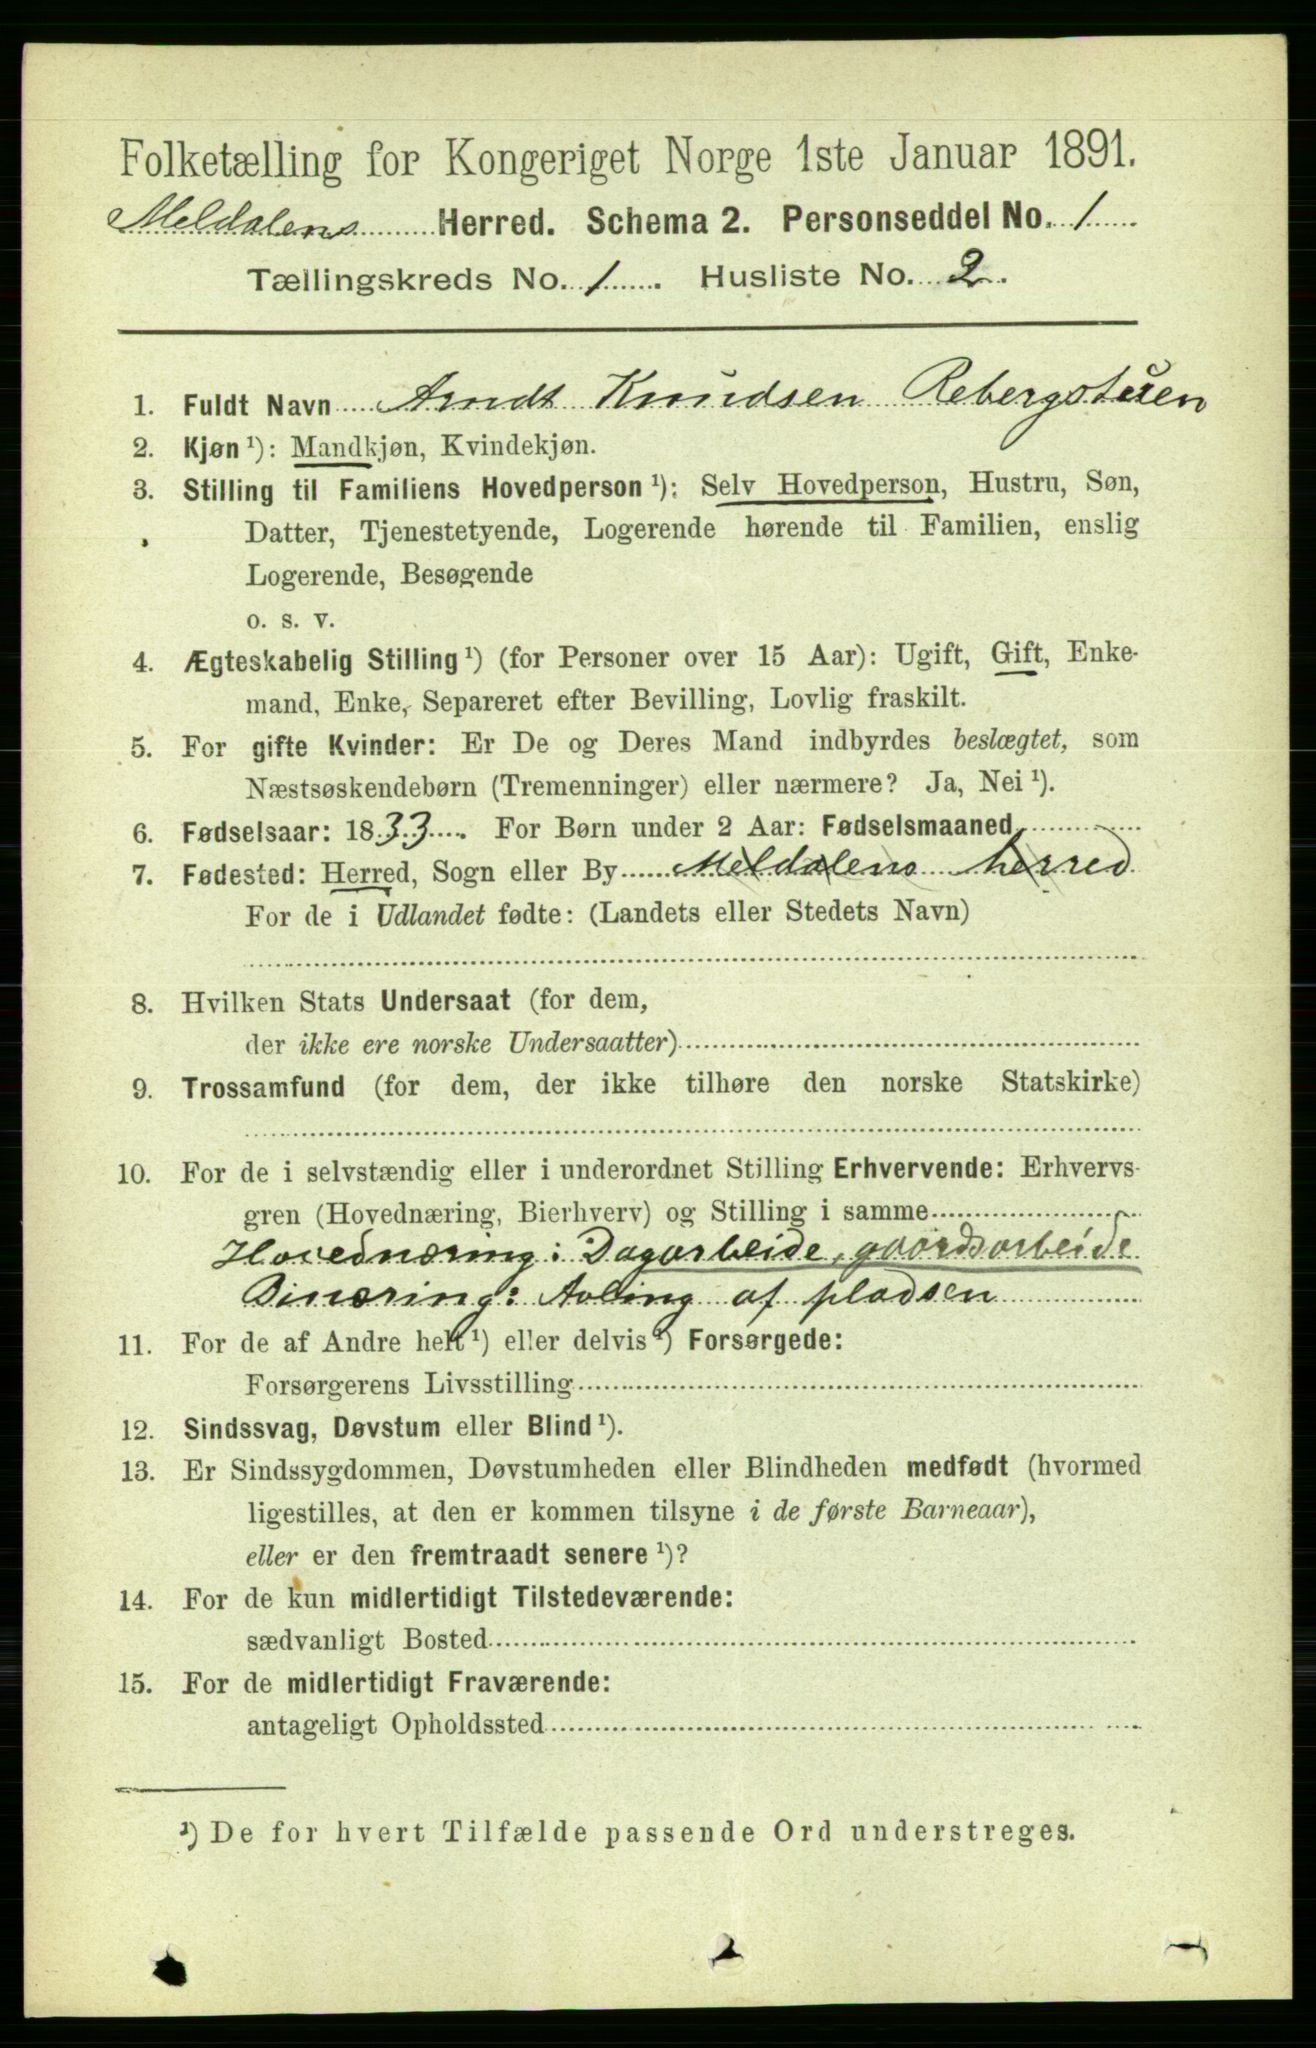 Folketælling for Kongeriget Norge 1ste Januar 1891.
Meldalens Herred. Schema 2. Personseddel No. 1
Tællingskreds No. 1. Husliste No. 2.
1. Fuldt Navn Arndt Knudsen
2. Kjøn ¹): Mandkjøn, Kvindekjøn.
3. Stilling til Familiens Hovedperson ¹): Selv Hovedperson, Hustru, Søn,
Datter, Tjenestetyende, Logerende hørende til Familien, enslig
Logerende, Besøgende
o. s. v.
4. Ægteskabelig Stilling ¹) (for Personer over 15 Aar): Ugift, Gift, Enke-
mand, Enke, Separeret efter Bevilling, Lovlig fraskilt.
5. For gifte Kvinder: Er De og Deres Mand indbyrdes beslægtet, som
Næstsøskendebørn (Tremenninger) eller nærmere? Ja, Nei ¹).
6. Fødselsaar: 1833. For Børn under 2 Aar: Fødselsmaaned
7. Fødested: Herred, Sogn eller By Meldalens herred
For de i Udlandet fødte: (Landets eller Stedets Navn)
8. Hvilken Stats Undersaat (for dem,
der ikke ere norske Undersaatter)
9. Trossamfund (for dem, der ikke tilhøre den norske Statskirke)
10. For de i selvstændig eller i underordnet Stilling Erhvervende: Erhvervs-
gren (Hovednæring, Bierhverv) og Stilling i samme
Hovednæring: Dagarbeide, gaardsarbeide
Binæring: Avling af pladsen
11. For de af Andre helt ¹) eller delvis ¹) Forsørgede:
Forsørgerens Livsstilling
12. Sindssvag, Døvstum eller Blind ¹).
13. Er Sindssygdommen, Døvstumheden eller Blindheden medfødt (hvormed
ligestilles, at den er kommen tilsyne i de første Barneaar),
eller er den fremtraadt senere ¹)?
14. For de kun midlertidigt Tilstedeværende:
sædvanligt Bosted
15. For de midlertidigt Fraværende:
antageligt Opholdssted
¹) De for hvert Tilfælde passende Ord understreges.